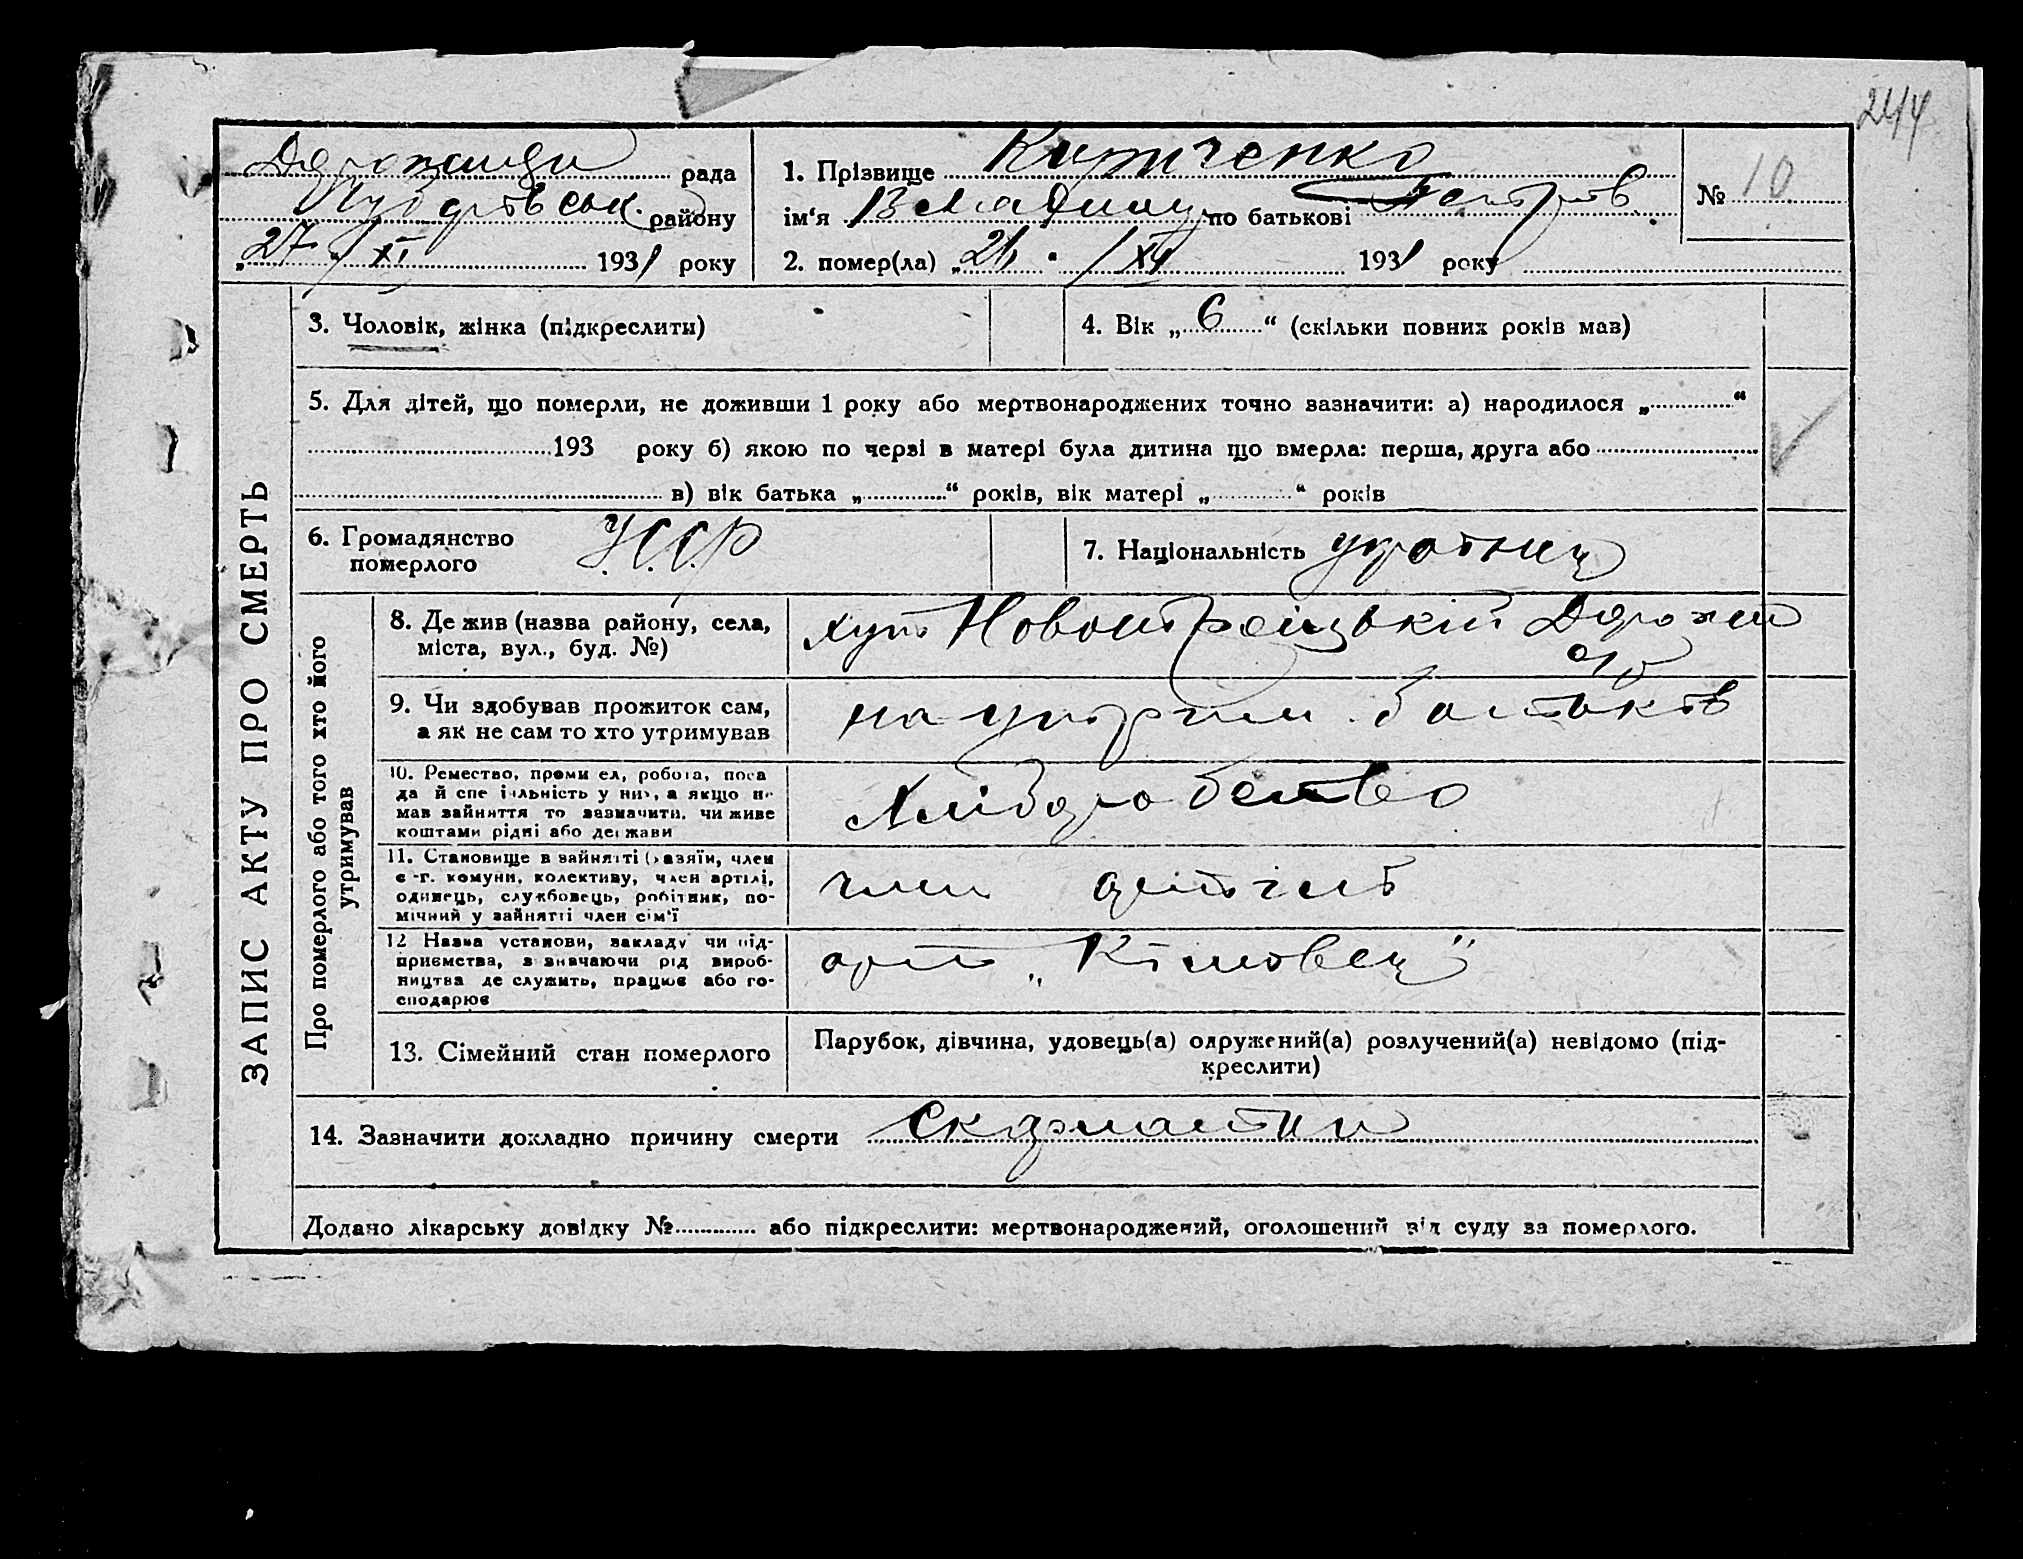 244
рада
1. Прізвище Кириченко
№ 10
району
ім'я Владимир по батькові Петров
„27“ XI 1931 року
2. помер(ла) „26“ / XI 1931 року
ЗАПИС АКТУ ПРО СМЕРТЬ
3. Чоловік, жінка (підкреслити)
4. Вік „6“ (скільки повних років мав)
5. Для дітей, що померли, не доживши 1 року або мертвонароджених точно зазначити: а) народилося „ “
193 року б) якою по черзі в матері була дитина що вмерла: перша, друга або
в) вік батька „ “ років, вік матері „ “ років
6. Громадянство
померлого
У.С.С.Р
7. Національність
україниц
Про померлого або того хто його
утримував
8. Де жив (назва району, села,
міста, вул., буд. №)
хут Новотроіцькій
9. Чи здобував прожиток сам,
а як не сам то хто утримував
на утрим. батьків
10. Ремество, промисел, робота, поса
да й спеціяльність у них, а якщо не
мав зайняття то зазначити, чи живе
коштами рідні або держави
Хліборобство
11. Становище в зайнятті (хазяїн, член
с.-г. комуни, колективу, член артілі,
одинець, службовець, робітник, по-
мічний у зайнятті член сім'ї
член артілі
12 Назва установи, закладу чи під-
приємства, зазначаючи рід вироб-
ництва де служить, працює або го-
сподарює
арт „Кімовец"
13. Сімейний стан померлого
Парубок, дівчина, удовець(а) одружений(а) розлучений(а) невідомо (під-
креслити)
14. Зазначити докладно причину смерти скарлатина
Додано лікарську довідку № або підкреслити: мертвонароджений, оголошений від суду за померлого.